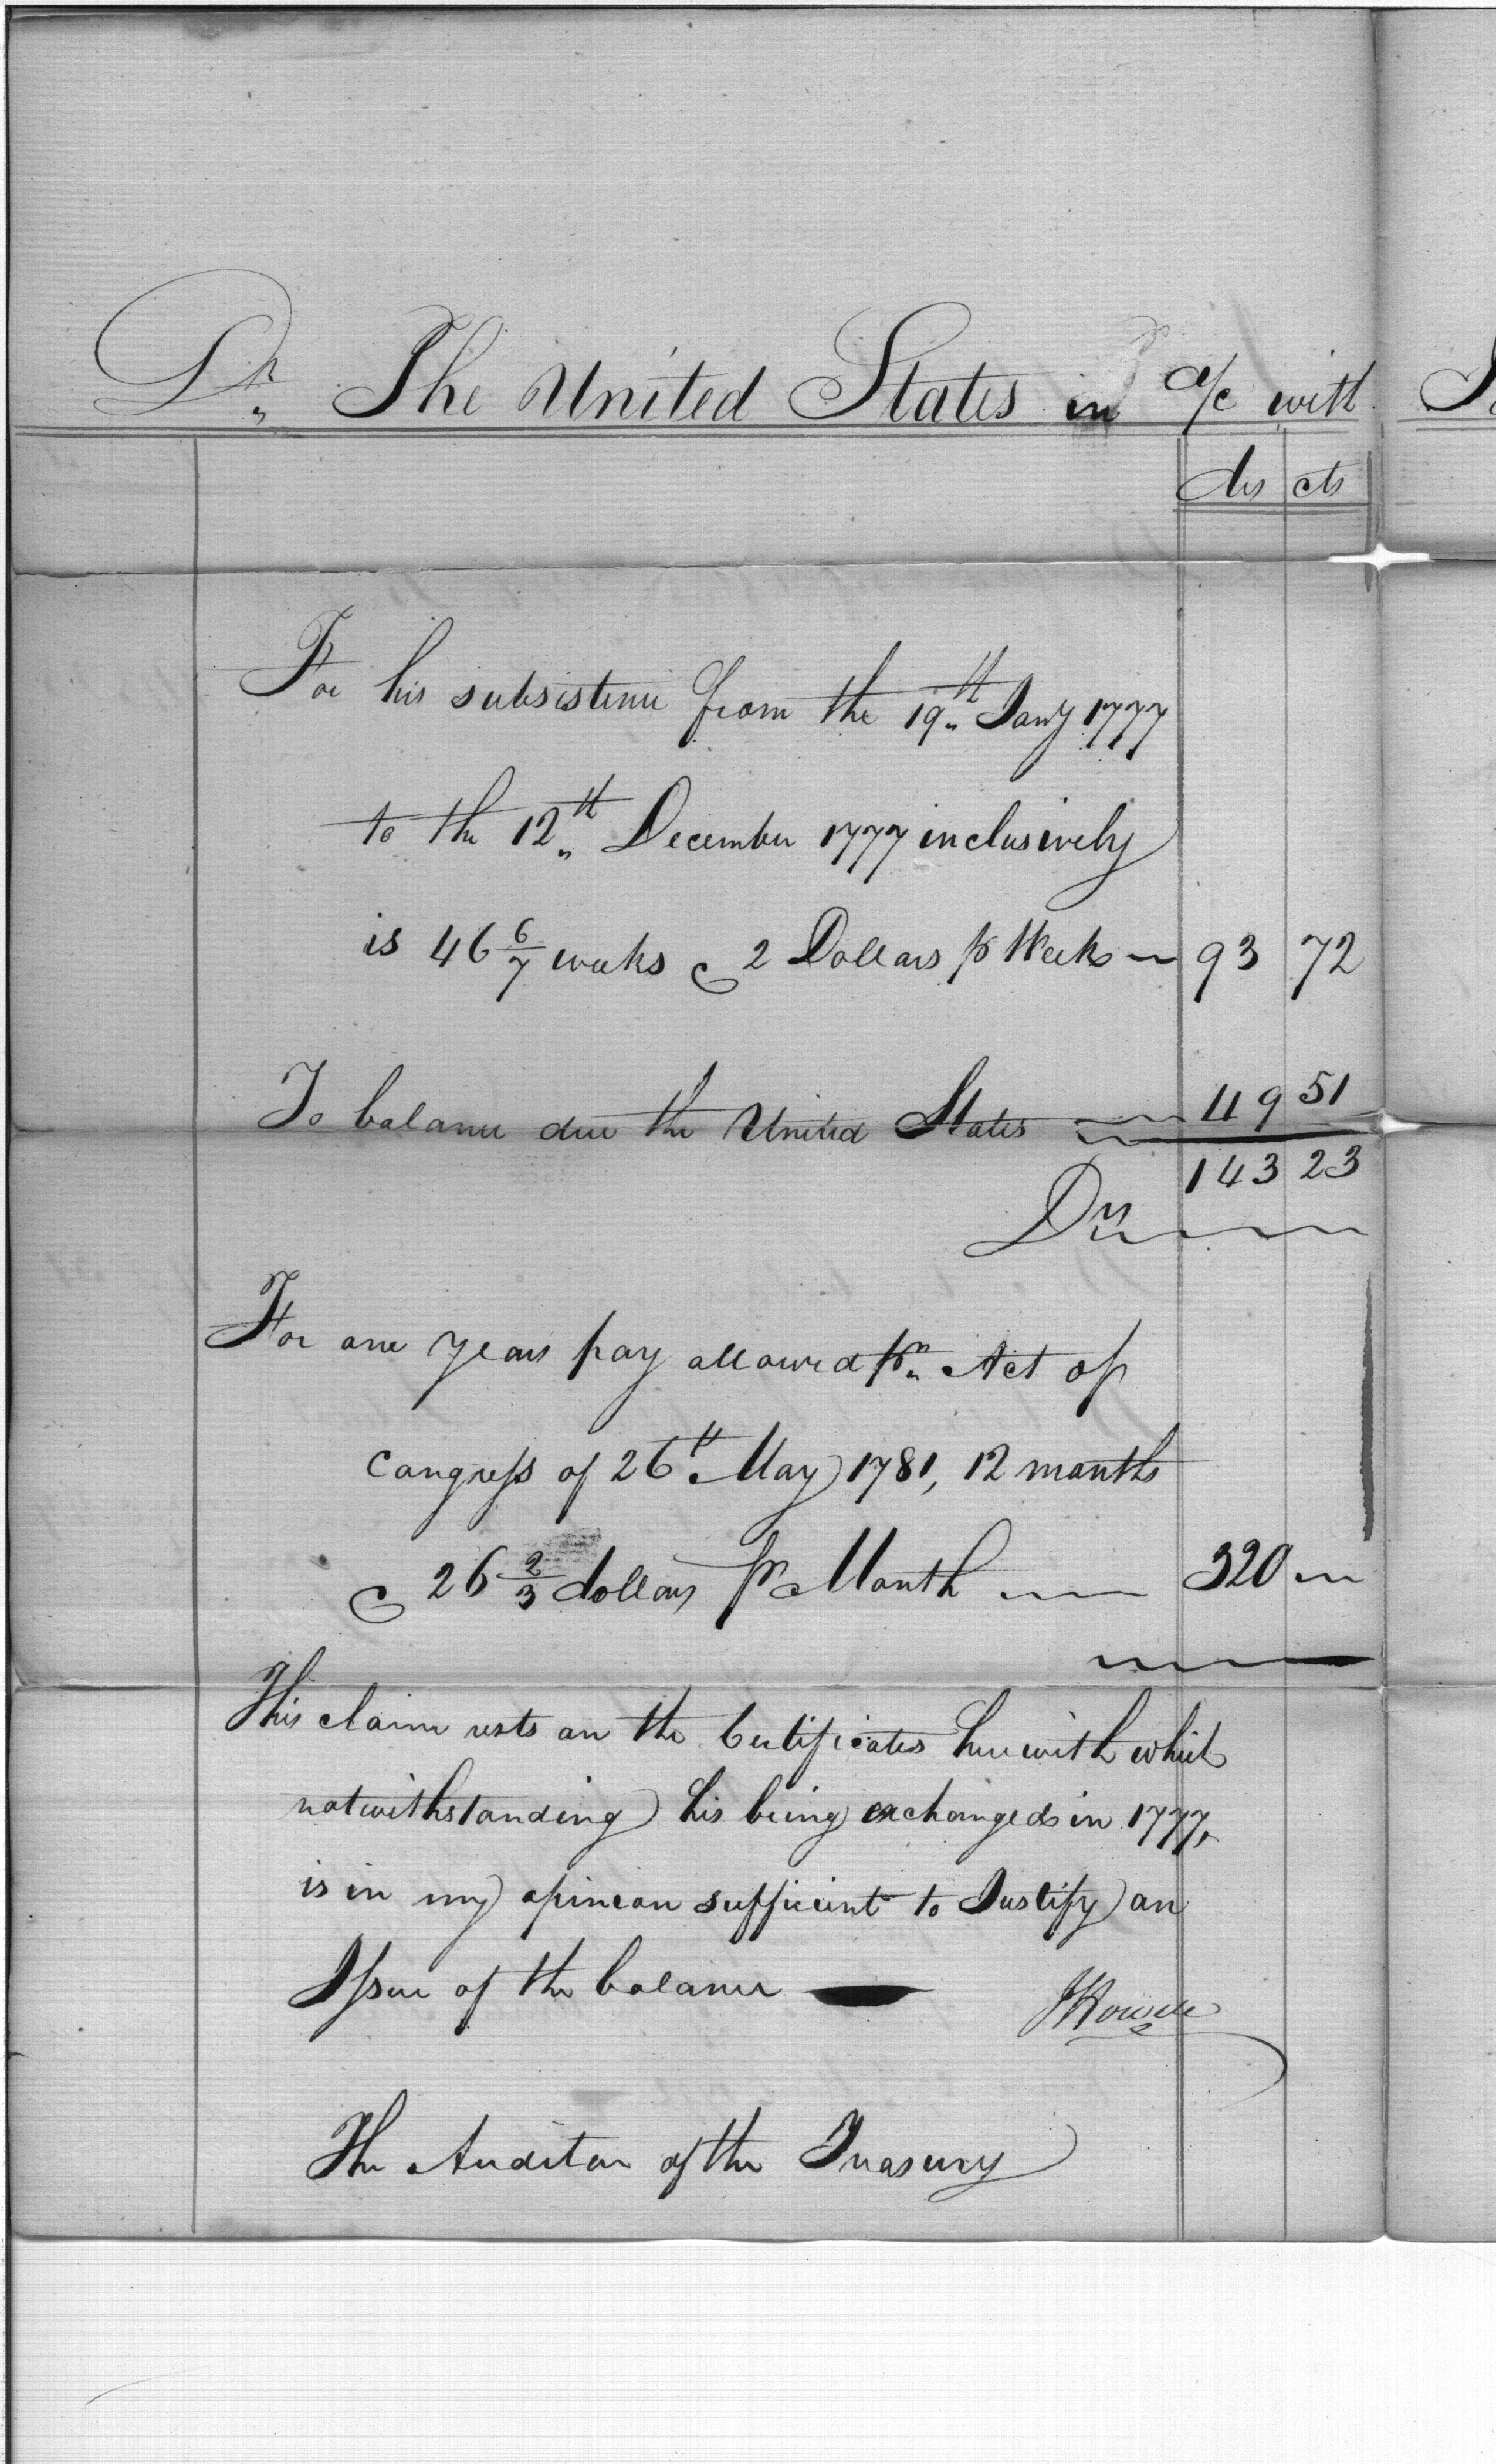 Dr. The United States in a/c with
dls cts
For his subsistence from the 19th Jany 1777
to the 12th December 1777 inclusively
is 46 6/7 weeks @ 2 Dollars pr Week 93 72
To balance due the United States 49 51
143 23
Drs
For one years pay allowed pr Act of
Congress of 26th May 1781, 12 months
@ 26 2/3 dollars pr Month 320
This claim rests on the Certificates herewith which
notwithstanding his being exchanged in 1777,
is in my opinion sufficient to Justify an
Issue of the balance
The Auditor of the Treasury